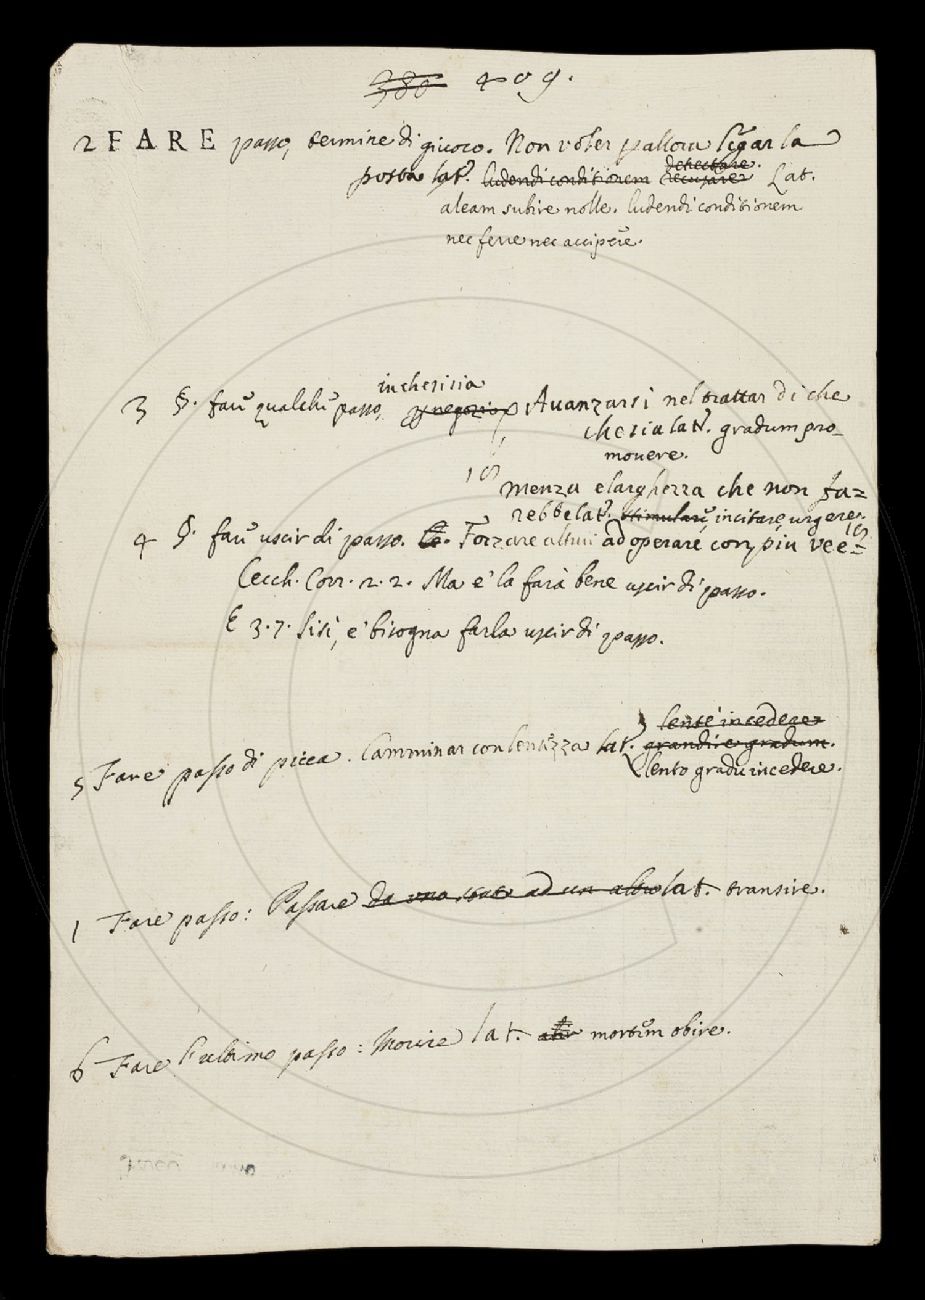 380 409.
2 FARE passo, termine di giuoco. Non voler p allora ligar la
detrectare.
posta lat. ludendi conditionem recusare Lat.
aleam subire nolle. ludendi conditionem
nec ferre nec accipere.
in che si sia
3 §. far qualche passo. negozio Avanzarsi nel trattar di che
che sia lat. gradum pro-
movere.
menza e larghezza che non fa-
rebbe lat. stimulare, incitare, urgere.
4 §. far uscir di passo. Forzare altrui ad operare con più vee-
Cecch. Corr. 2. 2. Ma e' la farà bene uscir di passo.
E 3. 7. Sisì, e' bisogna farla uscir di passo.
lente incedere
5 Fare passo di picca. Camminar con lentezza lat. grandire gradum.
lento gradu incedere.
1 Fare passo: Passare da uno stato ad un altro lat. transire.
6 Fare l'ultimo passo: Morire lat. mortem obire.